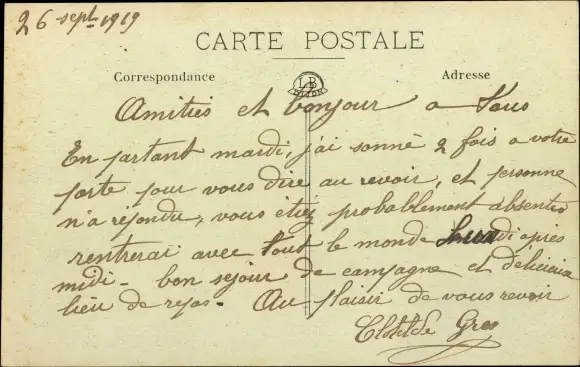 26 sept 1919
CARTE POSTALE
Correspondance
LB
DIJON
Adresse
Amitiés et bonjour a tous
En partant mardi, j'ai sonné 2 fois a votre
porte pour vous dire au revoir, et personne
n'a répondu, vous étiez probablement absents
rentrerai avec tout le monde di après
midi - bon sejour de campagne et délicieux
lieu de repos - Au plaisir de vous revoir
Clotilde Gros